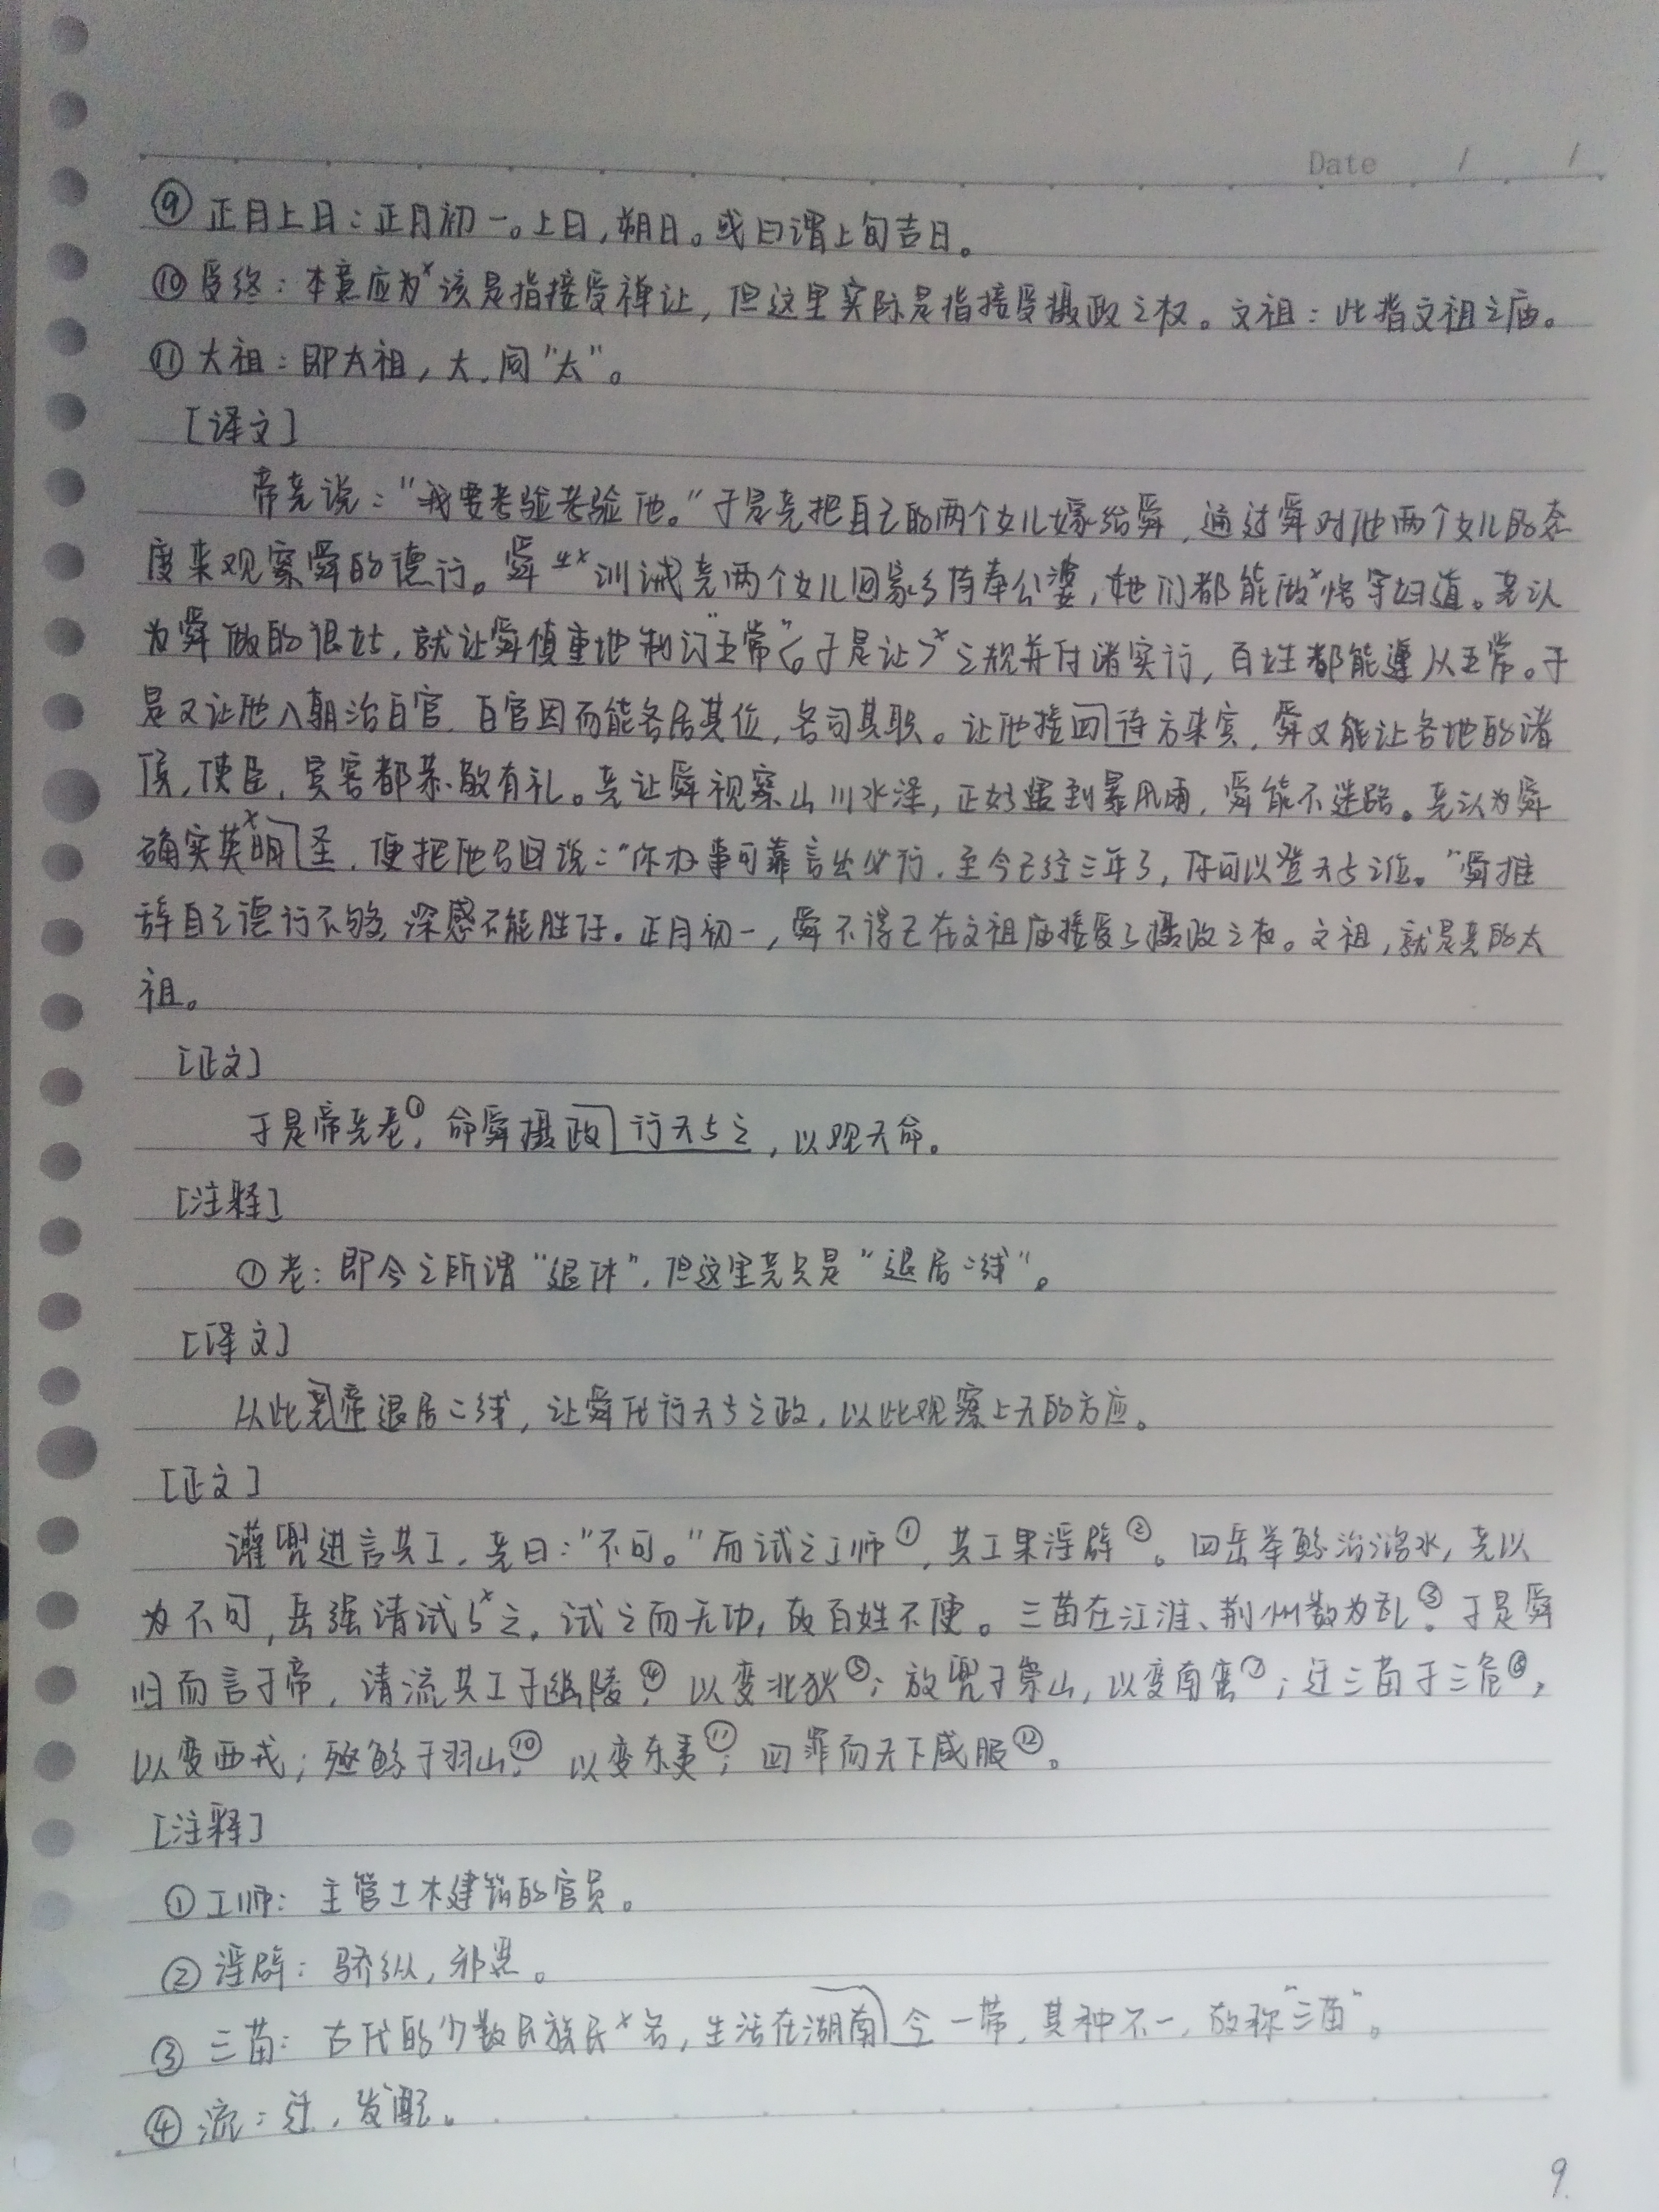 Date / /
⑨ 正月上日：正月初一。上日，朔日。或曰谓上旬吉日。
⑩ 受终：本意应为×该是指接受禅让，但这里实际是指接受摄政之权。文祖：此指文祖之庙。
⑪ 大祖：即太祖，大，同“太”。
[译文]
帝尧说：“我要考验考验他。”于是尧把自己的两个女儿嫁给舜，通过舜对他两个女儿的态
度来观察舜的德行。舜 训诫尧两个女儿回家乡侍奉公婆，她们都能做×恪守妇道。尧认
为舜做的很好，就让舜慎重地制订“五常”（。于是让）×之规并付诸实行，百姓都能遵从五常。于
是又让他入朝治百官，百官因而能各居其位，各司其职。让他接四待方来宾，舜又能让各地的诸
侯，使臣，宾客都恭敬有礼。尧让舜视察山川水泽，正好遇到暴风雨，舜能不迷路。尧认为舜
确实英明×圣，便把他召回说：“你办事可靠言出必行，至今已经三年了，你可以登天子之位。”舜推
辞自己德行不够，深感不能胜任。正月初一，舜不得已在文祖庙接受了摄政之权。文祖，就是尧的太
祖。
[正文]
于是帝尧老①，命舜摄政行天子之，以观天命。
[注释]
①老：即今之所谓“退休”，但这里尧只是“退居二线”。
[译文]
从此尧帝退居二线，让舜代行天子之政，以此观察上天的方应。
[正文]
灌兜进言共工，尧曰：“不可。”而试之工师①，共工果淫辟②。四岳举鲧治鸿水，尧以
为不可，岳强请试 ×之，试之而无功，故百姓不便。三苗在江淮、荆州数为乱③。于是舜
归而言于帝，请流共工于幽陵④，以变北狄⑤；放兜于崇山，以变南蛮⑦；迁三苗于三危⑧，
以变西戎；殛鲧于羽山⑩，以变东夷⑪；四罪而天下咸服⑫。
[注释]
①工师：主管土木建筑的官员。
②淫辟：骄纵，邪恶。
③三苗：古代的少数民族民×名，生活在湖南今一带，其种不一，故称“三苗”。
④流：迁，发配。
9.